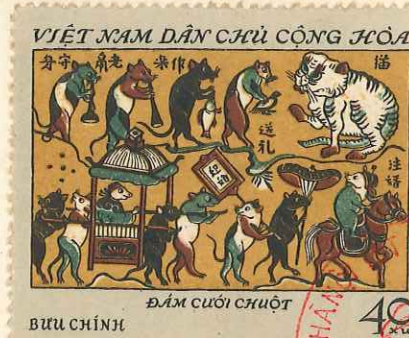 VIỆT NAM DÂN CHỦ CỘNG HÒA
身守 老 作 猫
送礼
ĐÁM CƯỚI CHUỘT
BƯU CHÍNH
40
XU